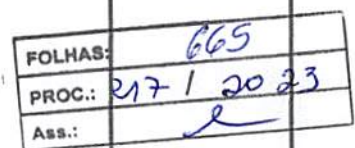 FOLHAS: 665
PROC.: 217 / 2023
Ass.: